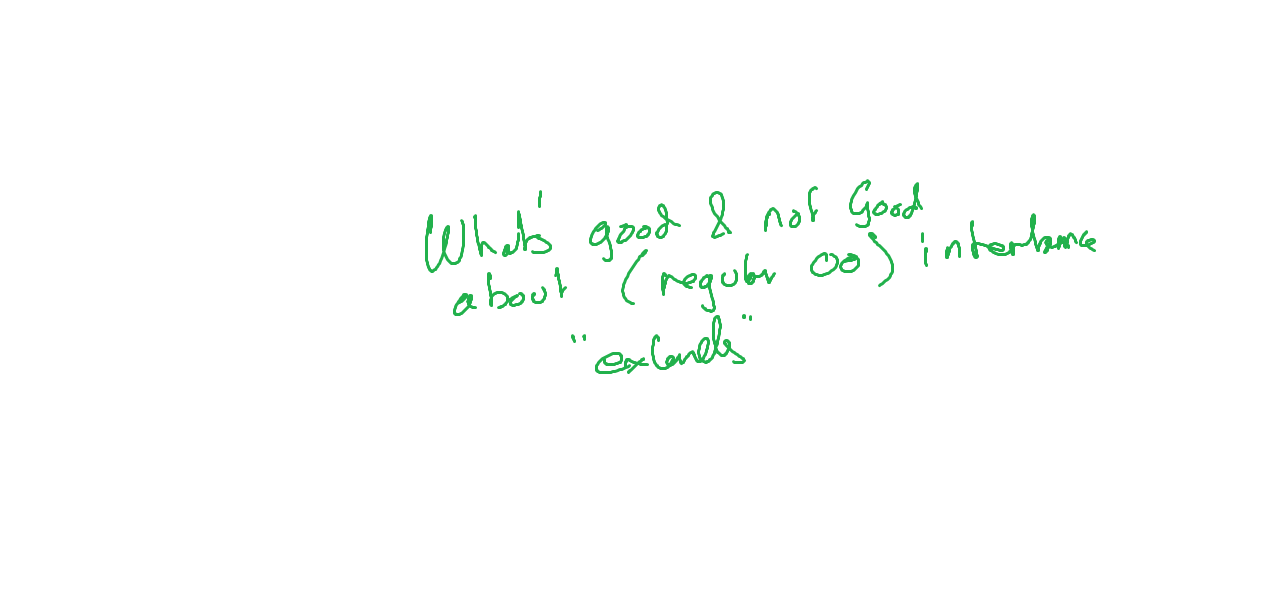 What's good & not Good
about (regular OO) inheritance
"extends"